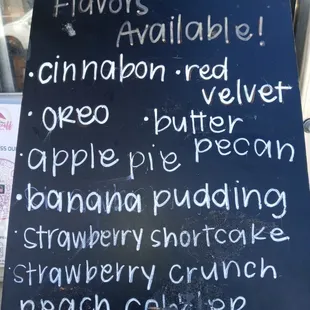 Flavors
Available!
·cinnabon ·red velvet
·OREO ·butter pecan
·apple pie
·banana pudding
·strawberry shortcake
·strawberry crunch
peach cobbler